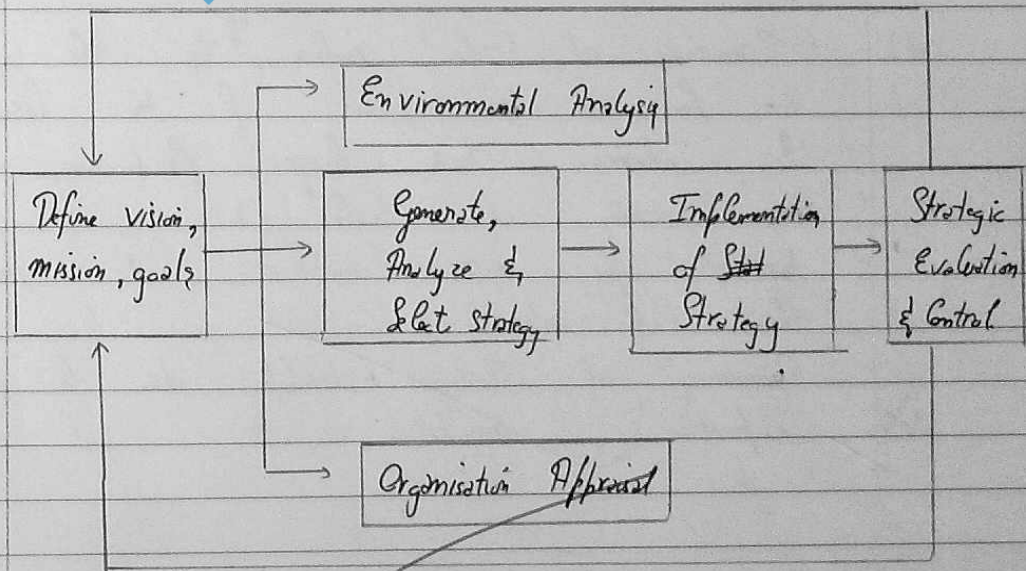 Environmental Analysis
Define vision,
mission, goals
Generate,
Analyze &
Select Strategy
Implementation
of Strategy
Strategic
Evaluation
& Control
Organisation Appraisal